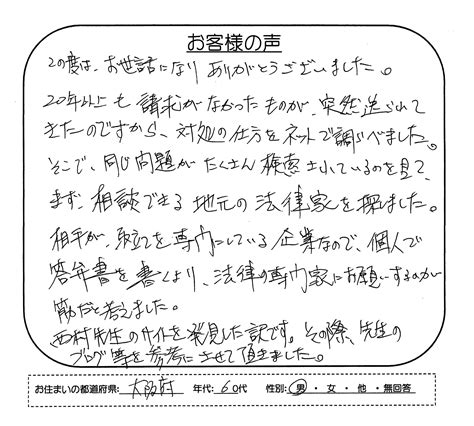 お客様の声
この度は、お世話になりありがとうございました。
20年以上も請求がなかったものが、突然送られて
きたのですから、対処の仕方をネットで調べました。
そこで、同じ問題がたくさん検索されているのを見て、
まず、相談できる地元の法律家を探しました。
相手が、取立てを専門にしている企業なので、個人で
答弁書を書くより、法律の専門家にお願いするのが
筋だと考えました。
西村先生のサイトを発見した訳です。その際、先生の
ブログ等を参考にさせて頂きました。
お住まいの都道府県: 大阪府 年代: 60代 性別: 男・女・他・無回答